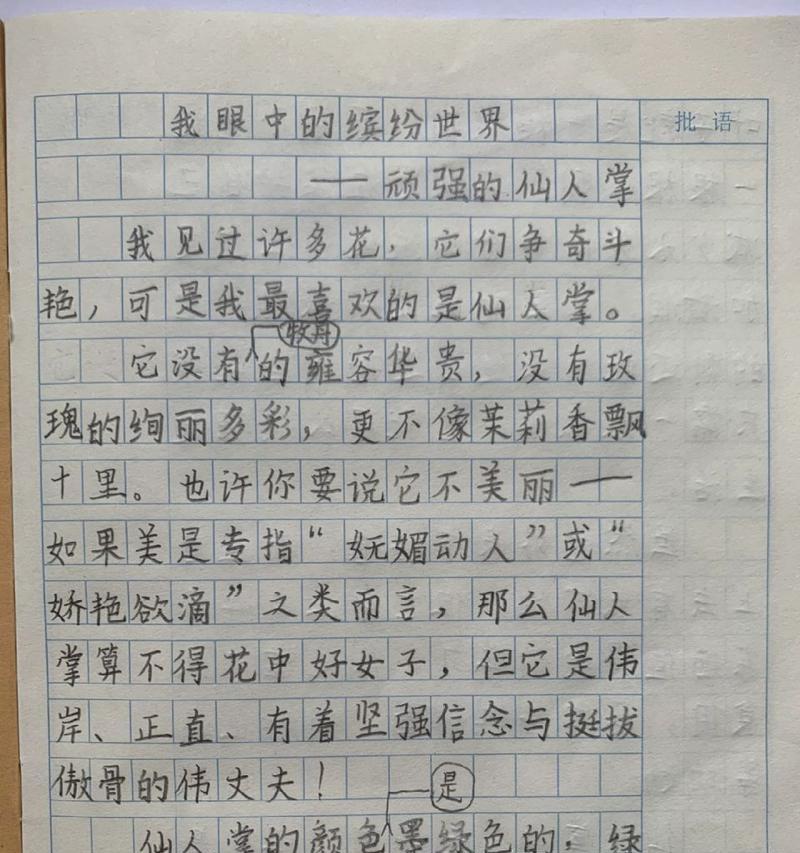 我眼中的缤纷世界
批语
——顽强的仙人掌
我见过许多花，它们争奇斗
艳，可是我最喜欢的是仙人掌。
牡丹
它没有的雍容华贵，没有玫
瑰的绚丽多彩，更不像茉莉香飘
十里。也许你要说它不美丽——
如果美是专指“妩媚动人”或“
娇艳欲滴”之类而言，那么仙人
掌算不得花中好女子，但它是伟
岸、正直、有着坚强信念与挺拔
傲骨的伟丈夫！
是
仙人掌的颜色墨绿色的，绿